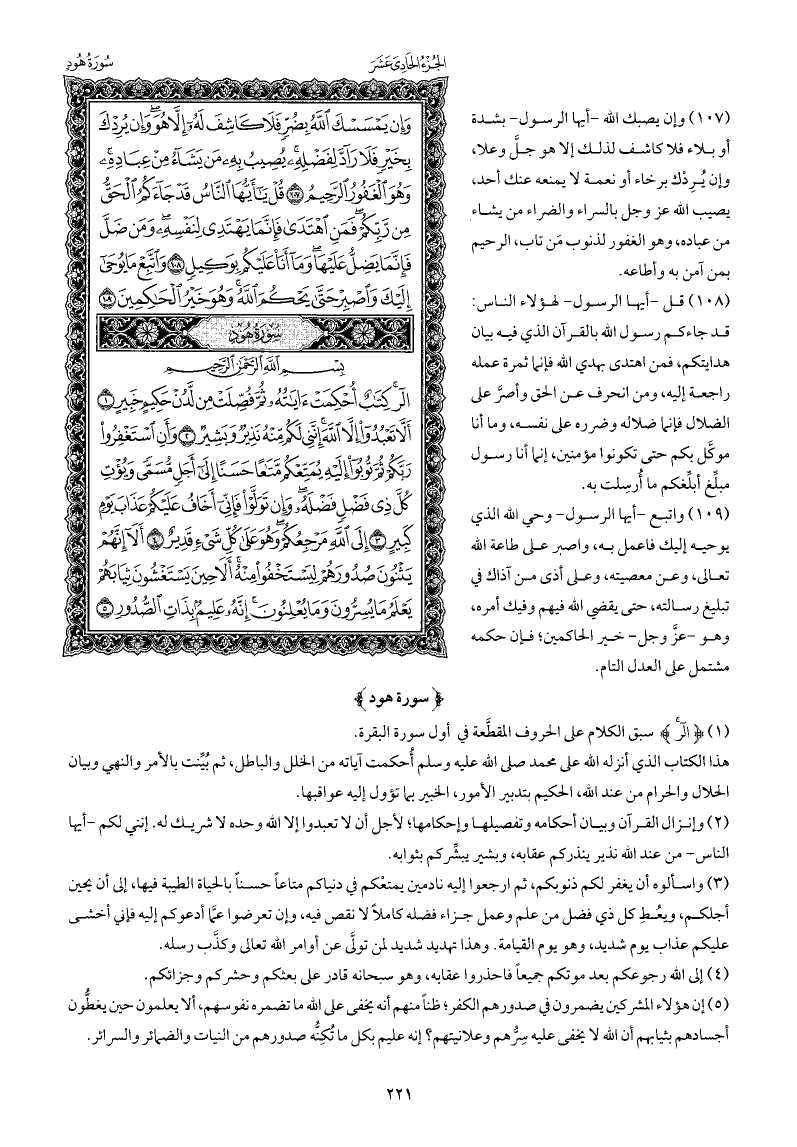 الجزء الحادي عشر
سورة هود
وَإِن يَمْسَسْكَ ٱللَّهُ بِضُرٍّ فَلَا كَاشِفَ لَهُۥٓ إِلَّا هُوَ ۖ وَإِن يُرِدْكَ
بِخَيْرٍ فَلَا رَآدَّ لِفَضْلِهِۦ ۚ يُصِيبُ بِهِۦ مَن يَشَآءُ مِنْ عِبَادِهِۦ ۚ
وَهُوَ ٱلْغَفُورُ ٱلرَّحِيمُ ١٠٧ قُلْ يَٰٓأَيُّهَا ٱلنَّاسُ قَدْ جَآءَكُمُ ٱلْحَقُّ
مِن رَّبِّكُمْ ۖ فَمَنِ ٱهْتَدَىٰ فَإِنَّمَا يَهْتَدِى لِنَفْسِهِۦ ۖ وَمَن ضَلَّ
فَإِنَّمَا يَضِلُّ عَلَيْهَا ۖ وَمَآ أَنَا۠ عَلَيْكُم بِوَكِيلٍ ١٠٨ وَٱتَّبِعْ مَا يُوحَىٰٓ
إِلَيْكَ وَٱصْبِرْ حَتَّىٰ يَحْكُمَ ٱللَّهُ ۚ وَهُوَ خَيْرُ ٱلْحَٰكِمِينَ ١٠٩
سورة هود
بِسْمِ ٱللَّهِ ٱلرَّحْمَٰنِ ٱلرَّحِيمِ
الٓر ۚ كِتَٰبٌ أُحْكِمَتْ ءَايَٰتُهُۥ ثُمَّ فُصِّلَتْ مِن لَّدُنْ حَكِيمٍ خَبِيرٍ ١
أَلَّا تَعْبُدُوٓا۟ إِلَّا ٱللَّهَ ۚ إِنَّنِى لَكُم مِّنْهُ نَذِيرٌ وَبَشِيرٌ ٢ وَأَنِ ٱسْتَغْفِرُوا۟
رَبَّكُمْ ثُمَّ تُوبُوٓا۟ إِلَيْهِ يُمَتِّعْكُم مَّتَٰعًا حَسَنًا إِلَىٰٓ أَجَلٍ مُّسَمًّى وَيُؤْتِ
كُلَّ ذِى فَضْلٍ فَضْلَهُۥ ۖ وَإِن تَوَلَّوْا۟ فَإِنِّىٓ أَخَافُ عَلَيْكُمْ عَذَابَ يَوْمٍ
كَبِيرٍ ٣ إِلَى ٱللَّهِ مَرْجِعُكُمْ ۖ وَهُوَ عَلَىٰ كُلِّ شَىْءٍ قَدِيرٌ ٤ أَلَآ إِنَّهُمْ
يَثْنُونَ صُدُورَهُمْ لِيَسْتَخْفُوا۟ مِنْهُ ۚ أَلَا حِينَ يَسْتَغْشُونَ ثِيَابَهُمْ
يَعْلَمُ مَا يُسِرُّونَ وَمَا يُعْلِنُونَ ۚ إِنَّهُۥ عَلِيمٌۢ بِذَاتِ ٱلصُّدُورِ ٥
(١٠٧) وإن يصبك الله -أيها الرسول- بشدة
أو بلاء فلا كاشف لذلك إلا هو جلَّ وعلا،
وإن يُرِدْك برخاء أو نعمة لا يمنعه عنك أحد،
يصيب الله عز وجل بالسراء والضراء من يشاء
من عباده، وهو الغفور لذنوب مَن تاب، الرحيم
بمن آمن به وأطاعه.
(١٠٨) قل -أيها الرسول- لهؤلاء الناس:
قد جاءكم رسول الله بالقرآن الذي فيه بيان
هدايتكم، فمن اهتدى بهدي الله فإنما ثمرة عمله
راجعة إليه، ومن انحرف عن الحق وأصرَّ على
الضلال فإنما ضلاله وضرره على نفسه، وما أنا
موكَّل بكم حتى تكونوا مؤمنين، إنما أنا رسول
مبلِّغ أبلِّغكم ما أُرسِلت به.
(١٠٩) واتبع -أيها الرسول- وحي الله الذي
يوحيه إليك فاعمل به، واصبر على طاعة الله
تعالى، وعن معصيته، وعلى أذى من آذاك في
تبليغ رسالته، حتى يقضي الله فيهم وفيك أمره،
وهو -عزَّ وجل- خير الحاكمين؛ فإن حكمه
مشتمل على العدل التام.
﴿ سورة هود ﴾
(١) ﴿ الٓر ۚ ﴾ سبق الكلام على الحروف المقطَّعة في أول سورة البقرة.
هذا الكتاب الذي أنزله الله على محمد صلى الله عليه وسلم أُحكمت آياته من الخلل والباطل، ثم بُيِّنت بالأمر والنهي وبيان
الحلال والحرام من عند الله، الحكيم بتدبير الأمور، الخبير بما تؤول إليه عواقبها.
(٢) وإنزال القرآن وبيان أحكامه وتفصيلها وإحكامها؛ لأجل أن لا تعبدوا إلا الله وحده لا شريك له. إنني لكم -أيها
الناس- من عند الله نذير ينذركم عقابه، وبشير يبشِّركم بثوابه.
(٣) واسألوه أن يغفر لكم ذنوبكم، ثم ارجعوا إليه نادمين يمتعْكم في دنياكم متاعاً حسناً بالحياة الطيبة فيها، إلى أن يحين
أجلكم، ويعُطِ كل ذي فضل من علم وعمل جزاء فضله كاملاً لا نقص فيه، وإن تعرضوا عمَّا أدعوكم إليه فإني أخشى
عليكم عذاب يوم شديد، وهو يوم القيامة. وهذا تهديد شديد لمن تولَّى عن أوامر الله تعالى وكذَّب رسله.
(٤) إلى الله رجوعكم بعد موتكم جميعاً فاحذروا عقابه، وهو سبحانه قادر على بعثكم وحشركم وجزائكم.
(٥) إن هؤلاء المشركين يضمرون في صدورهم الكفر؛ ظناً منهم أنه يخفى على الله ما تضمره نفوسهم، ألا يعلمون حين يغطُّون
أجسادهم بثيابهم أن الله لا يخفى عليه سِرُّهم وعلانيتهم؟ إنه عليم بكل ما تُكِنُّه صدورهم من النيات والضمائر والسرائر.
٢٢١